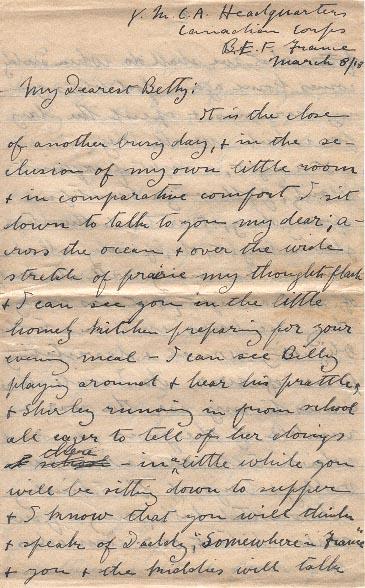 Y.M.C.A. Headquarters
Canadian Corps
B.E.F. France
March 8/18
My Dearest Betty:
It is the close
of another busy day, & in the se-
clusion of my own little room
& in comparative comfort I sit
down to talk to you my dear; a-
cross the ocean & over the wide
stretch of prairie my thoughts flash
& I can see you in the little
homely kitchen preparing for your
evening meal - I can see Billy
playing around & hear his prattle,
& Shirley running in from school
all eager to tell of her doings
at school there - in a little while you
will be sitting down to supper
& I know that you will think
& speak of Daddy, "Somewhere in France"
& you & the kiddies will talk